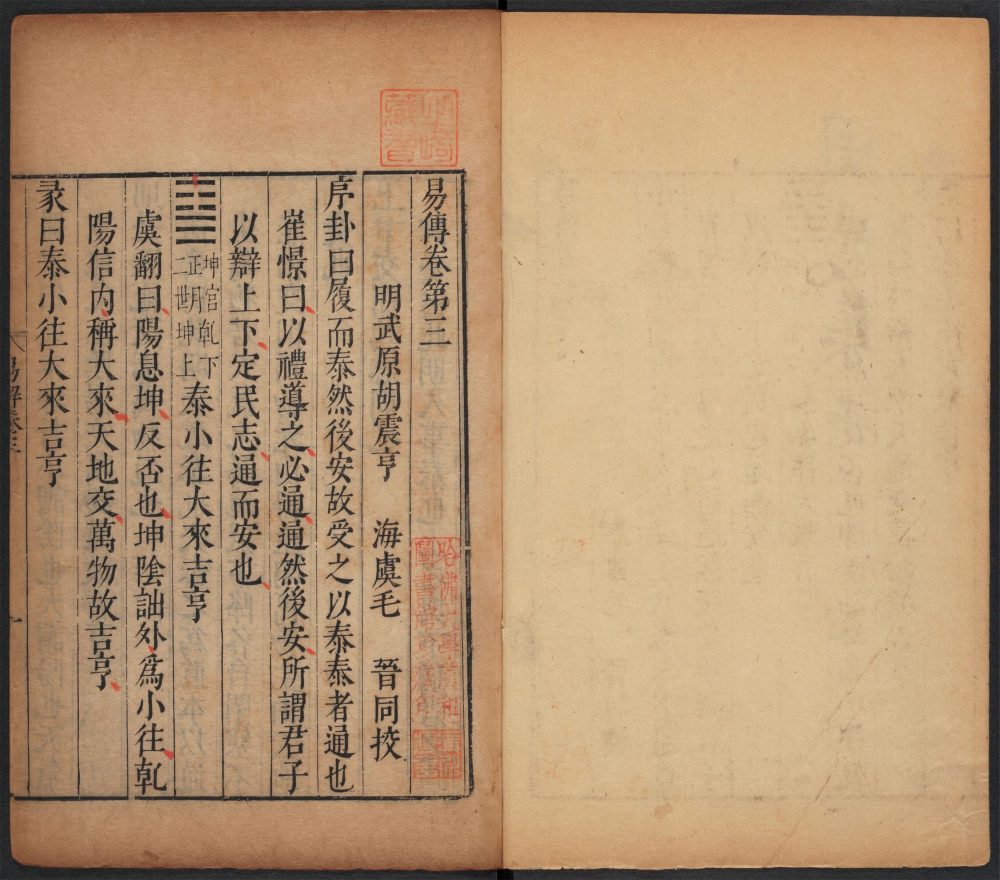 易傳卷第三
明武原胡震亨 海虞毛 晉同挍
序卦曰履而泰然後安故受之以泰泰者通也
崔憬曰以禮導之必通通然後安所謂君子
以辯上下定民志通而安也
坤宮乹下
正月坤上
二世
泰小往大來吉亨
虞翻曰陽息坤反否也坤陰詘外爲小往乹
陽信内稱大來天地交萬物故吉亨
彖曰泰小往大來吉亨
易解卷三
一